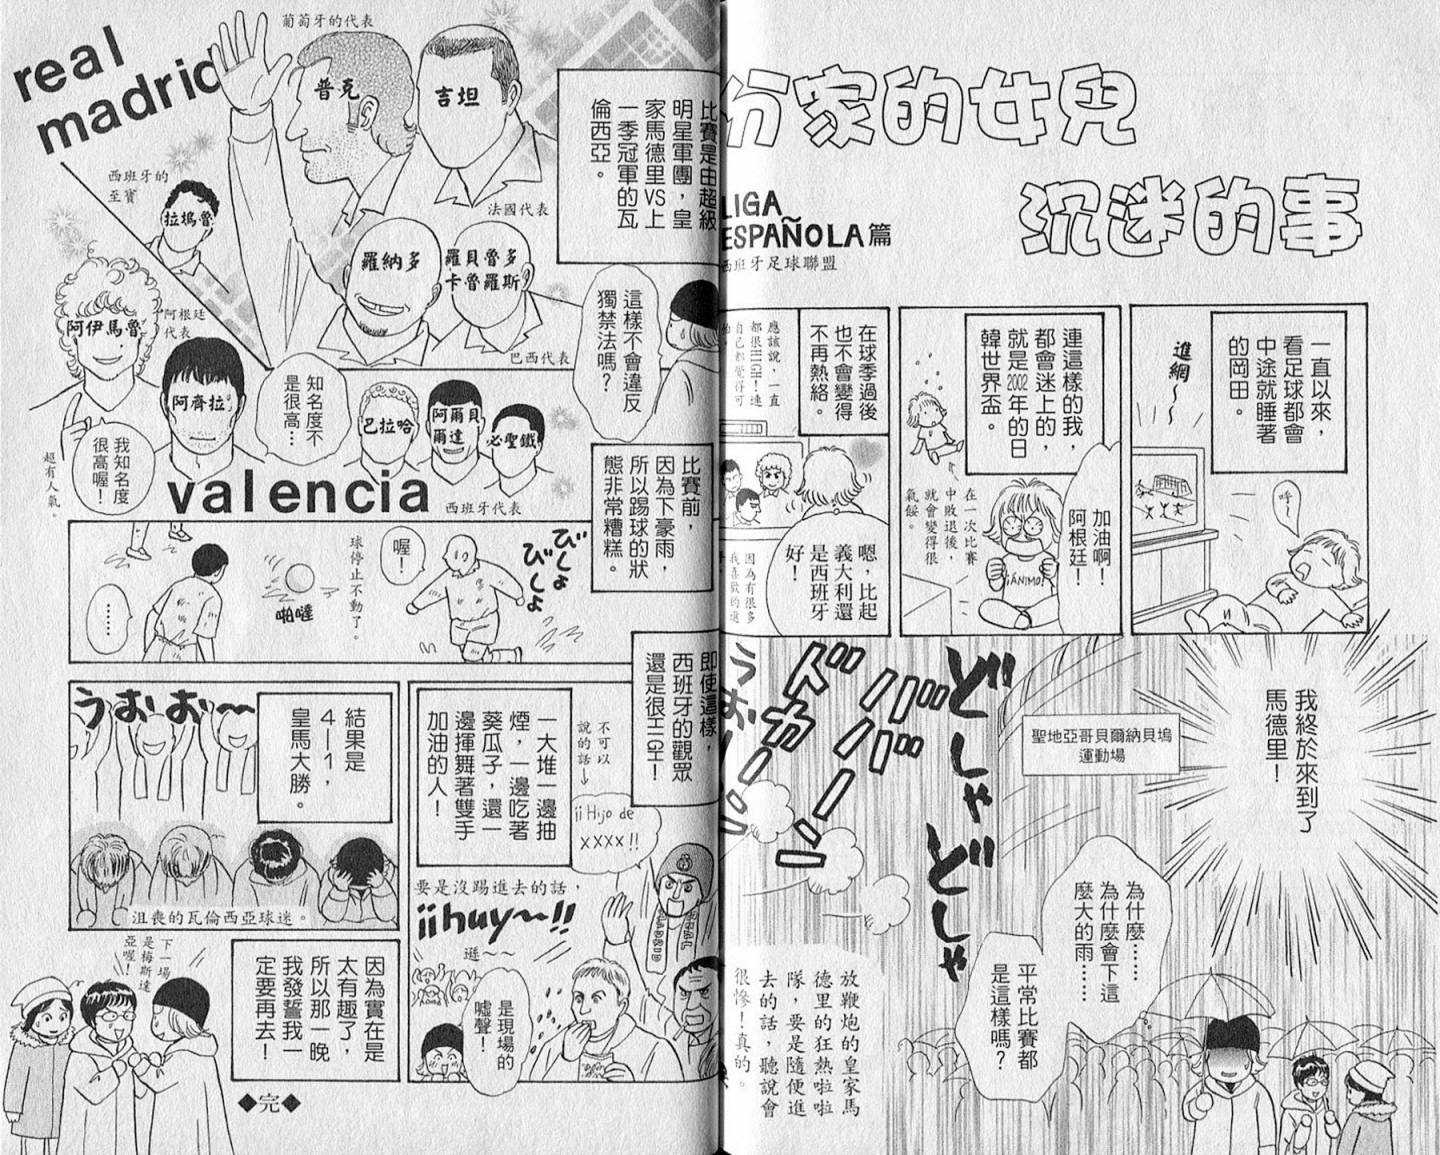 份家的女兒
沉迷的事
LIGA
ESPAÑOLA篇
西班牙足球聯盟
一直以來，
看足球都會
中途就睡著
的岡田。
進網～
呼～
連這樣的我，
都會迷上的，
就是2002年的日
韓世界盃。
加油啊！
阿根廷！
¡ÁNIMO!
在一次比賽
中敗退後，
就會變得很
氣餒。
在球季過後
也不會變得
不再熱絡。
應該說，一直
都很HIGH！連
自己都覺得可
怕。
嗯，比起
義大利還
是西班牙
好！
因為有很多
我喜歡的進
我終於來到了
馬德里！
聖地亞哥貝爾納貝塢
運動場
どしゃどしゃ
ババーン
ドカーン
うおーっ
為什麼……
為什麼會下這
麼大的雨……
平常比賽都
是這樣嗎？
放鞭炮的皇家馬
德里的狂熱啦啦
隊，要是隨便進
去的話，聽說會
很慘！真的。
比賽是由超級
明星軍團，皇
家馬德里VS上
一季冠軍的瓦
倫西亞。
real
madrid
葡萄牙的代表
普克
吉坦
法國代表
西班牙的
至寶
拉塢魯
羅納多
羅貝魯多
卡魯羅斯
巴西代表
這樣不會違反
獨禁法嗎？
阿根廷
代表
阿伊馬魯
我知名度
很高喔！
超有人氣。
阿齊拉
知名度不
是很高…
巴拉哈
阿爾貝
爾達
必聖鐵
valencia
西班牙代表
比賽前，
因為下豪雨，
所以踢球的狀
態非常糟糕。
びしょ
びしょ
喔！
球停止不動了。
啪噠
……
即使這樣，
西班牙的觀眾
還是很HIGH！
一大堆一邊抽
煙，一邊吃著
葵瓜子，還一
邊揮舞著雙手
加油的人！
不可以
說的話→
¡¡Hijo de
xxxx!!
要是沒踢進去的話，
¡¡huy～!!
遜～～
是現場的
噓聲！
結果是
4—1，
皇馬大勝。
うおお～
沮喪的瓦倫西亞球迷。
因為實在是
太有趣了，
所以那一晚
我發誓我一
定要再去！
下一場
是梅斯達
亞喔！
◆完◆